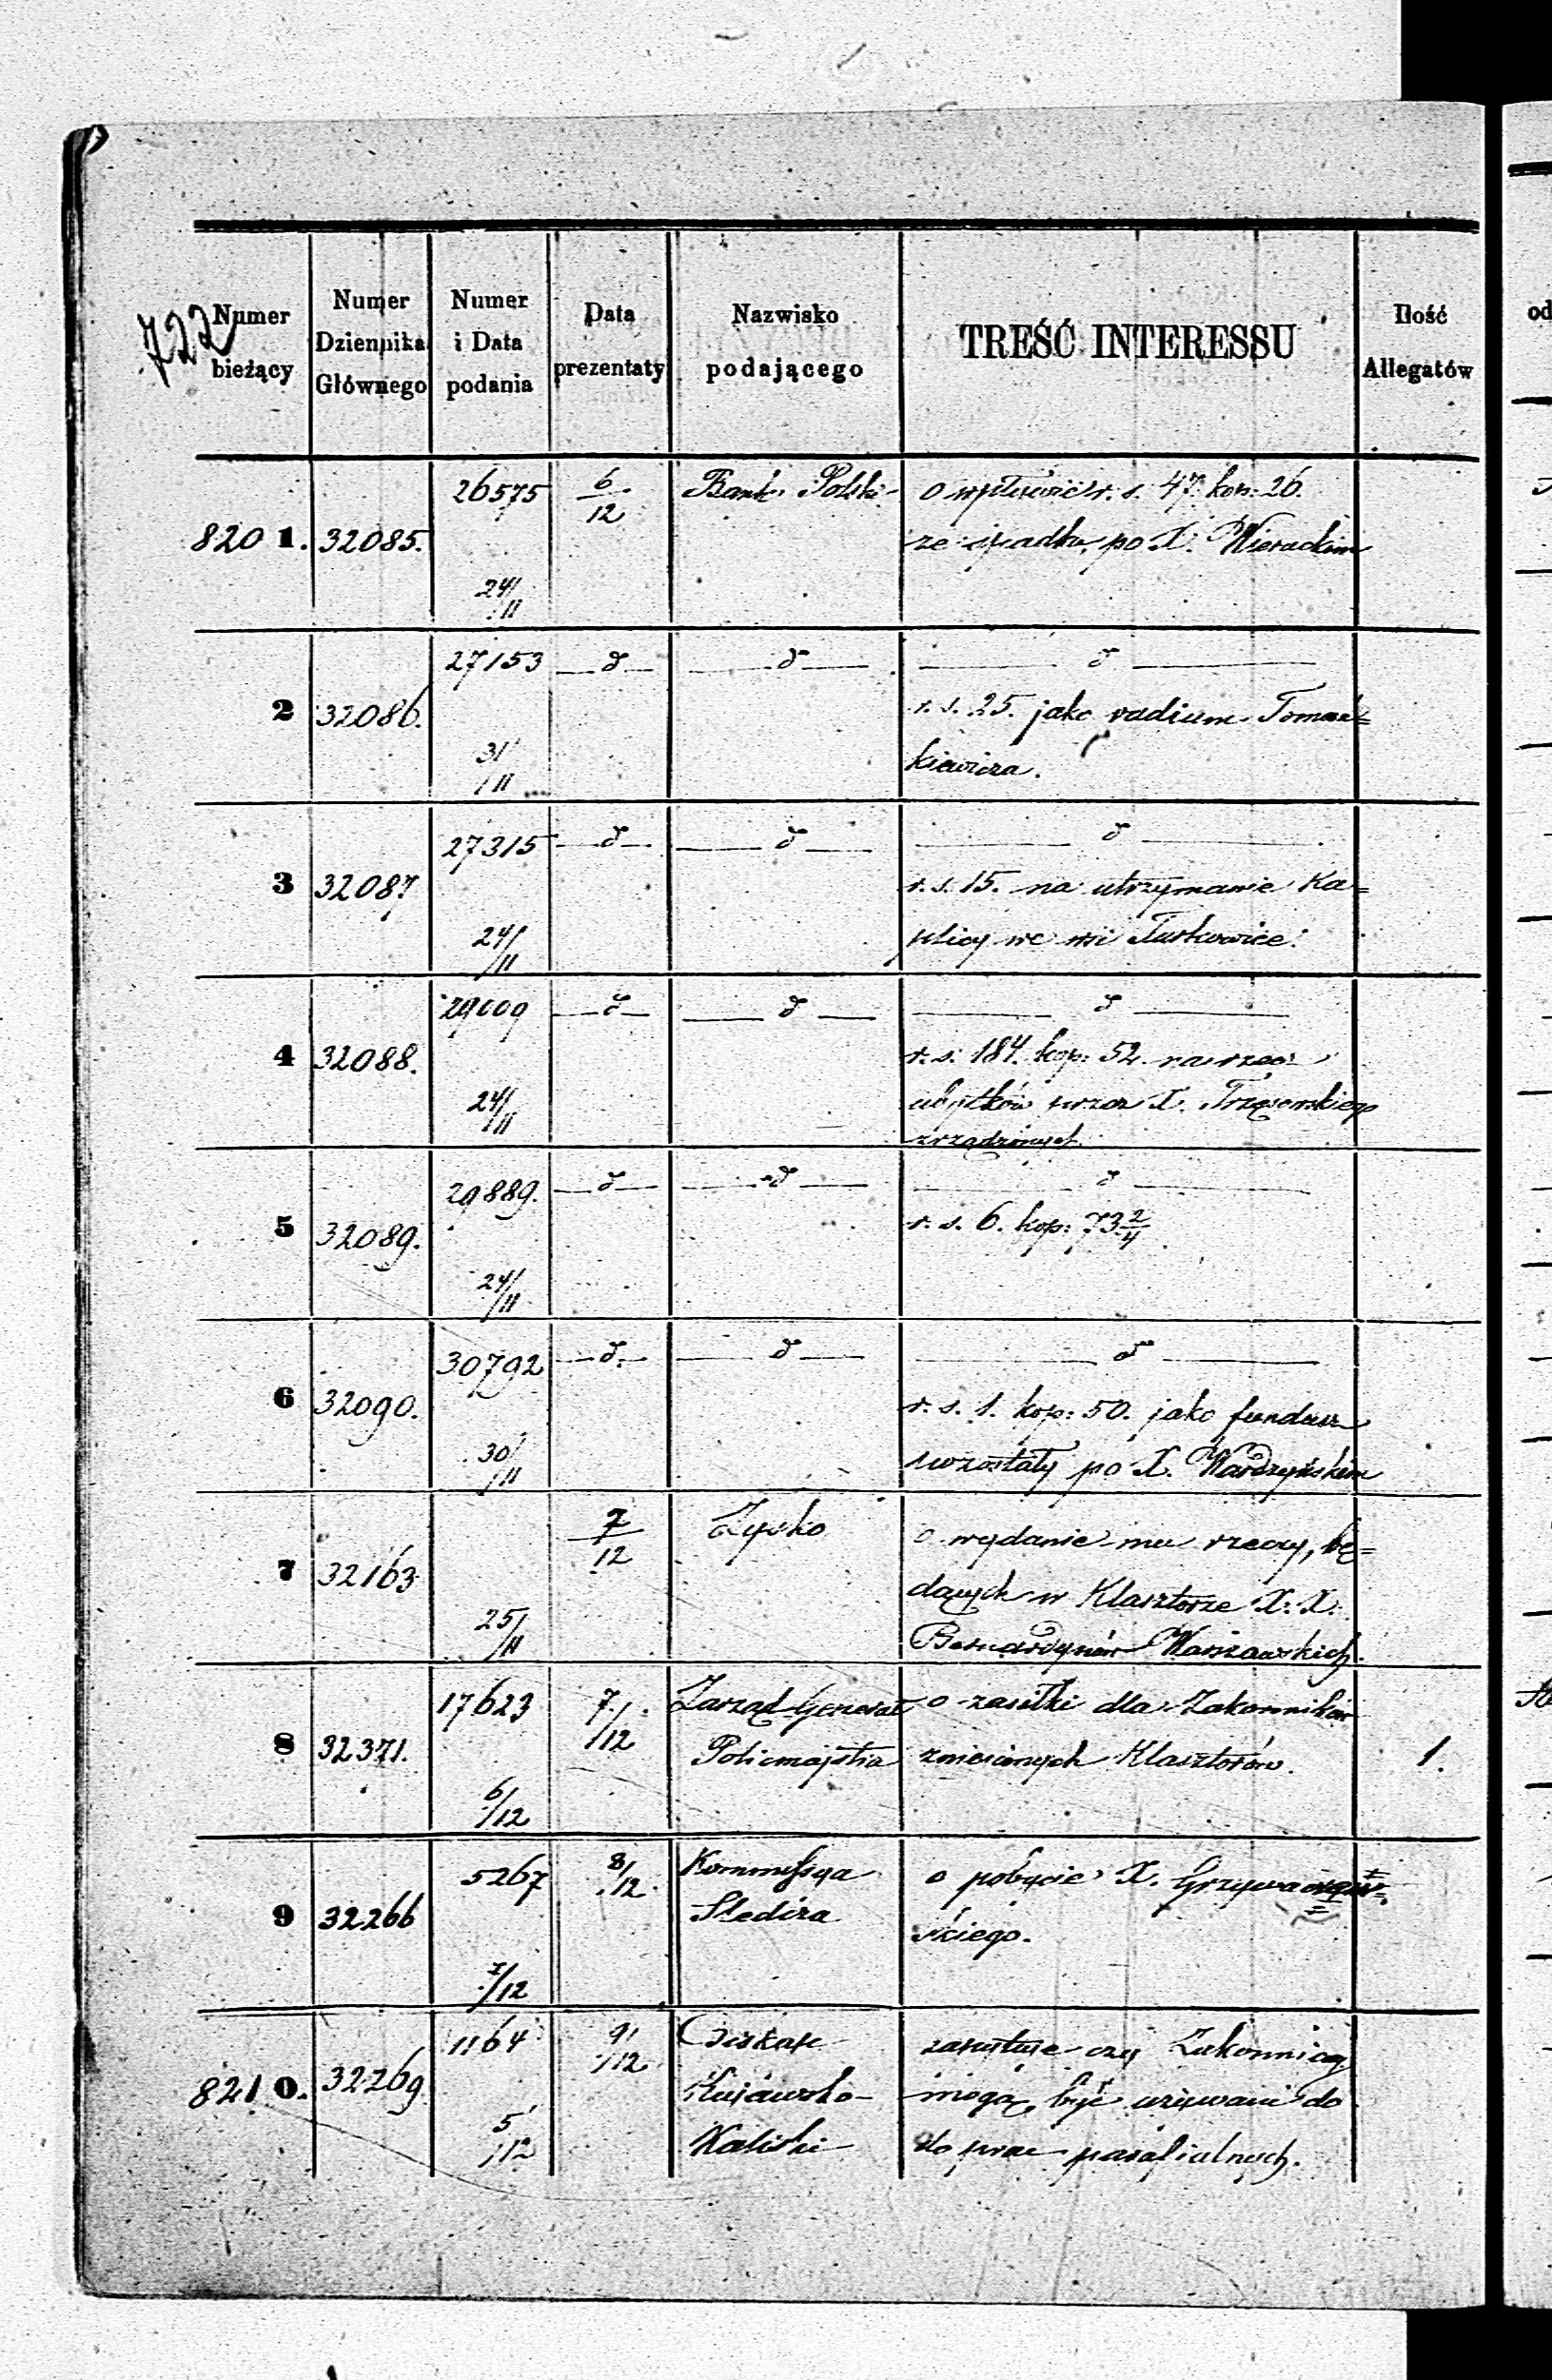 722
Numer
bieżący
Numer
Dziennika
Głównego
Numer
i Data
podania
Data
prezentaty
Nazwisko
podającego
TREŚĆ INTERESSU
Ilość
Allegatów
8201. 32085. 26575 24/11 6/12 Bank Polski o wpływie r. s. 47. kop: 26.
ze spadku po X. Wierackim
2 32086. 27153 31/11 d d d
r. s. 25. jako vadium Toman=
kiewicza.
3 32087. 27315 24/11 d d d
r. s. 15. na utrzymanie Ka=
plicy we wsi Turkowice.
4 32088. 29009 24/11 d d d
r. s. 184. kop: 52. na rzecz
ubytków przez X. Trząsowskiego
zrządzonych.
5 32089. 29889. 24/11 d d d
r. s. 6. kop: 73 2/4
6 32090. 30792 30/11 d d d
r. s. 1. kop: 50. jako fundusz
pozostały po X. Wardzyńskim
7 32163 25/11 7/12 Zysko o wydanie mu rzeczy, bę=
dących w Klasztorze X. X.
Bernardynów Warszawskich.
8 32371. 17623 6/12 7/12 Zarząd Generał o zasiłki dla Zakonników 1.
Policmajstra zniesionych Klasztorów.
9 32266 5267 7/12 8/12 Kommissya o pobycie X. Grzywaczew=
Sledcza skiego.
8210. 32269 1164 5/12 9/12 zapytuje czy Zakonnicy
Kujawsko- mogą być używani do
Kaliski do prac parafialnych.